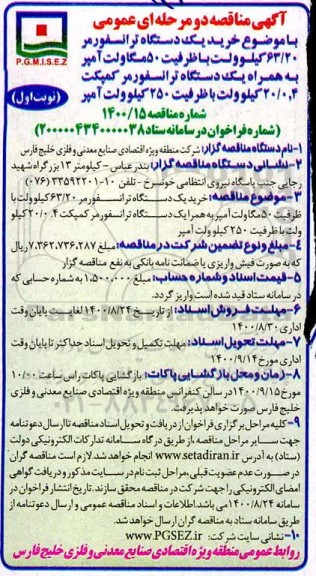 آگهی مناقصه دو مرحله ای عمومی
با موضوع خرید یک دستگاه ترانسفورمر
۶۳/۲۰ کیلوولت با ظرفیت ۵۰ مگاولت آمپر
به همراه یک دستگاه ترانسفورمر کمپکت
۲۰/۰,۴ کیلوولت با ظرفیت ۲۵۰ کیلوولت آمپر
P.G.M.I.S.E.Z
(نوبت اول)
شماره مناقصه ۱۴۰۰/۱۵
(شماره فراخوان در سامانه ستاد ۲۰۰۰۰۰۴۳۴۰۰۰۰۰۳۸)
۱-نام دستگاه مناقصه گزار: شرکت منطقه ویژه اقتصادی صنایع معدنی و فلزی خلیج فارس
۲- نشانی دستگاه مناقصه گزار: بندرعباس - کیلومتر ۱۳ بزرگراه شهید
رجایی جنب پاسگاه نیروی انتظامی خونسرخ - تلفن ۱۰-۳۳۵۹۲۲۰۱ (۰۷۶)
۳-موضوع مناقصه: خرید یک دستگاه ترانسفورمر ۶۳/۲۰ کیلوولت با
ظرفیت ۵۰ مگاولت آمپر به همراه یک دستگاه ترانسفورمر کمپکت ۲۰/۰,۴ کیلو
ولت با ظرفیت ۲۵۰ کیلوولت آمپر
۴-مبلغ و نوع تضمین شرکت در مناقصه: مبلغ ۷,۳۶۲,۷۳۶,۲۸۷ ریال
که به صورت فیش واریزی یا ضمانت نامه بانکی به نفع مناقصه گزار
۵-قیمت اسناد و شماره حساب: مبلغ ۱,۵۰۰,۰۰۰ به شماره حسابی که
در سامانه ستاد قید شده است واریز گردد.
۶-مهلت فروش اسناد: از تاریخ ۱۴۰۰/۸/۲۴ لغایت پایان وقت
اداری ۱۴۰۰/۸/۳۰
۷-مهلت تحویل اسناد: مهلت تکمیل و تحویل اسناد حداکثر تا پایان وقت
اداری مورخ ۱۴۰۰/۹/۱۴
۸-زمان و محل بازگشایی پاکات: بازگشایی پاکات راس ساعت ۱۰/۰۰
مورخ ۱۴۰۰/۹/۱۵ در سالن کنفرانس منطقه ویژه اقتصادی صنایع معدنی و فلزی
خلیج فارس صورت خواهد پذیرفت.
۹-کلیه مراحل برگزاری فراخوان از دریافت و تحویل اسناد مناقصه تا ارسال دعوتنامه
جهت سایر مراحل مناقصه، از طریق درگاه سامانه تدارکات الکترونیکی دولت
(ستاد) به آدرس www.setadiran.ir انجام خواهد شد. لازم است مناقصه گران
در صورت عدم عضویت قبلی، مراحل ثبت نام در سایت مذکور و دریافت گواهی
امضای الکترونیکی را جهت شرکت در مناقصه محقق سازند. تاریخ انتشار فراخوان در
سامانه ۱۴۰۰/۸/۲۴ می باشد. اطلاعات و اسناد مناقصه عمومی و ارسال دعوتنامه از
طریق سامانه ستاد به مناقصه گران ارسال خواهد شد.
۱۰-نشانی سایت شرکت: www.PGSEZ.ir
روابط عمومی منطقه ویژه اقتصادی صنایع معدنی و فلزی خلیج فارس